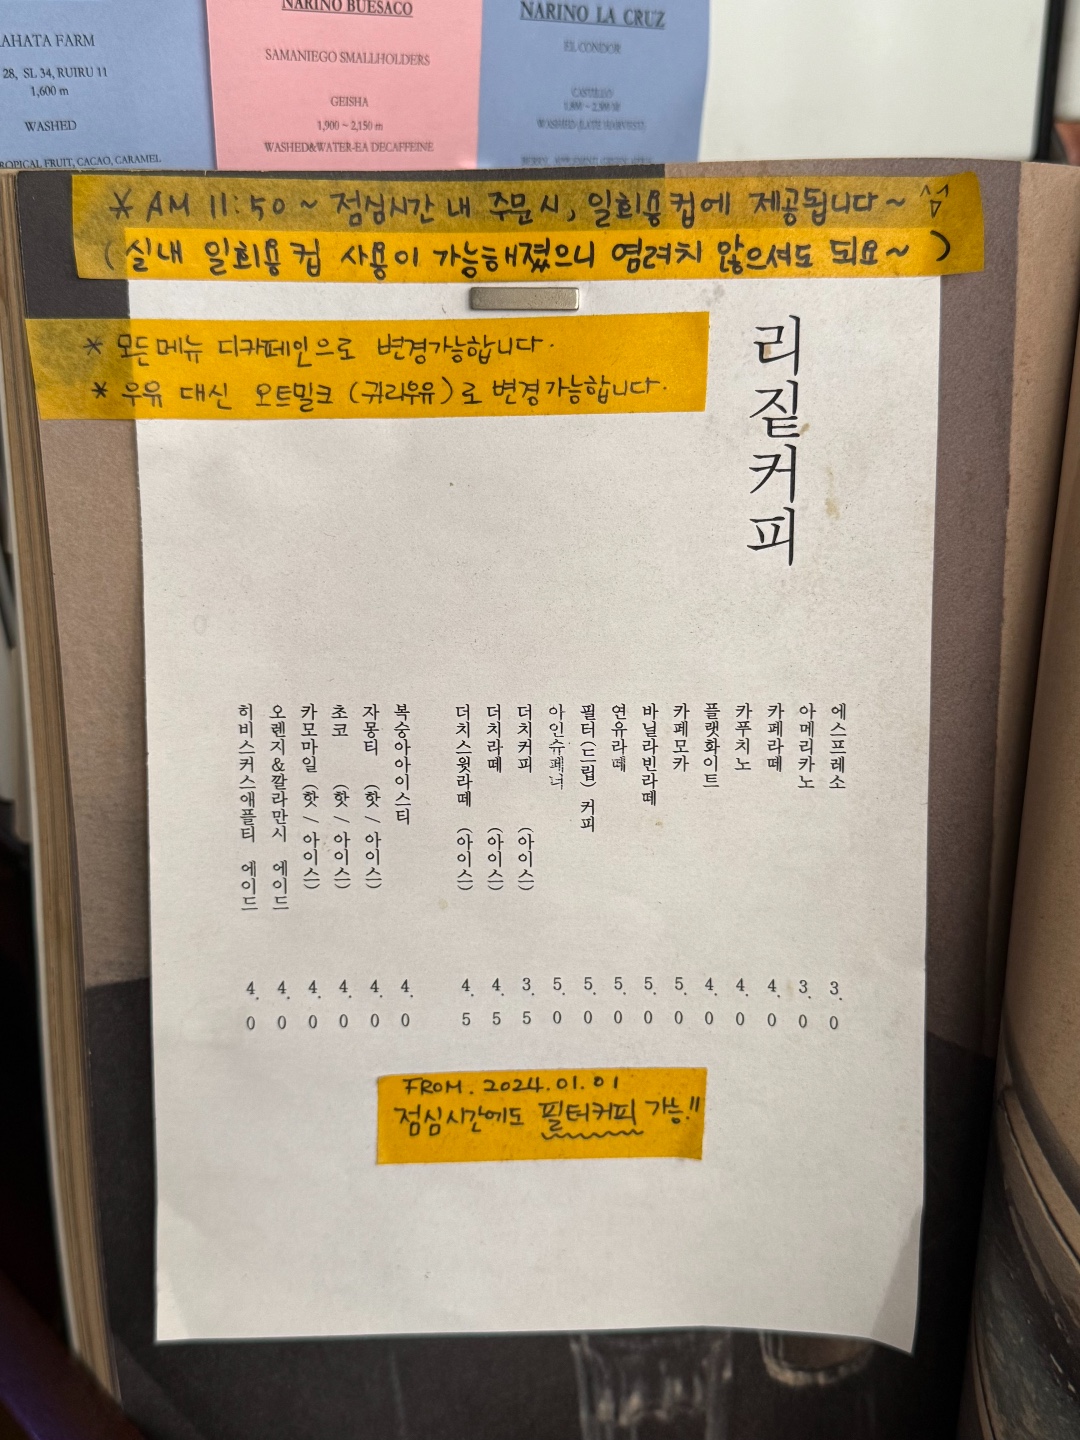 AHATA FARM
28, SL 34, RUIRU 11
1,600 m
WASHED
ROPICAL FRUIT, CACAO, CARAMEL
NARINO BUESACO
SAMANIEGO SMALLHOLDERS
GEISHA
1,900 ~ 2,150 m
WASHED&WATER-EA DECAFFEINE
NARINO LA CRUZ
EL CONDOR
CASTILLO
* AM 11:50 ~ 점심시간 내 주문 시, 일회용컵에 제공됩니다~
(실내 일회용 컵 사용이 가능해졌으니 염려치 않으셔도 되요~ )
* 모든메뉴 디카페인으로 변경가능합니다.
* 우유 대신 오트밀크 (귀리우유)로 변경가능합니다.
리짙커피
에스프레소 3.0
아메리카노 3.0
카페라떼 4.0
카푸치노 4.0
플랫화이트 4.0
카페모카 5.0
바닐라빈라떼 5.0
연유라떼 5.0
필터(드립) 커피 5.0
아인슈페너 5.0
더치커피 (아이스) 3.5
더치라떼 (아이스) 4.5
더치스윗라떼 (아이스) 4.5
복숭아아이스티 4.0
자몽티 (핫/아이스) 4.0
초코 (핫/아이스) 4.0
카모마일 (핫/아이스) 4.0
오렌지&깔라만시 에이드 4.0
히비스커스애플티 에이드 4.0
FROM. 2024.01.01
점심시간에도 필터커피 가능!!